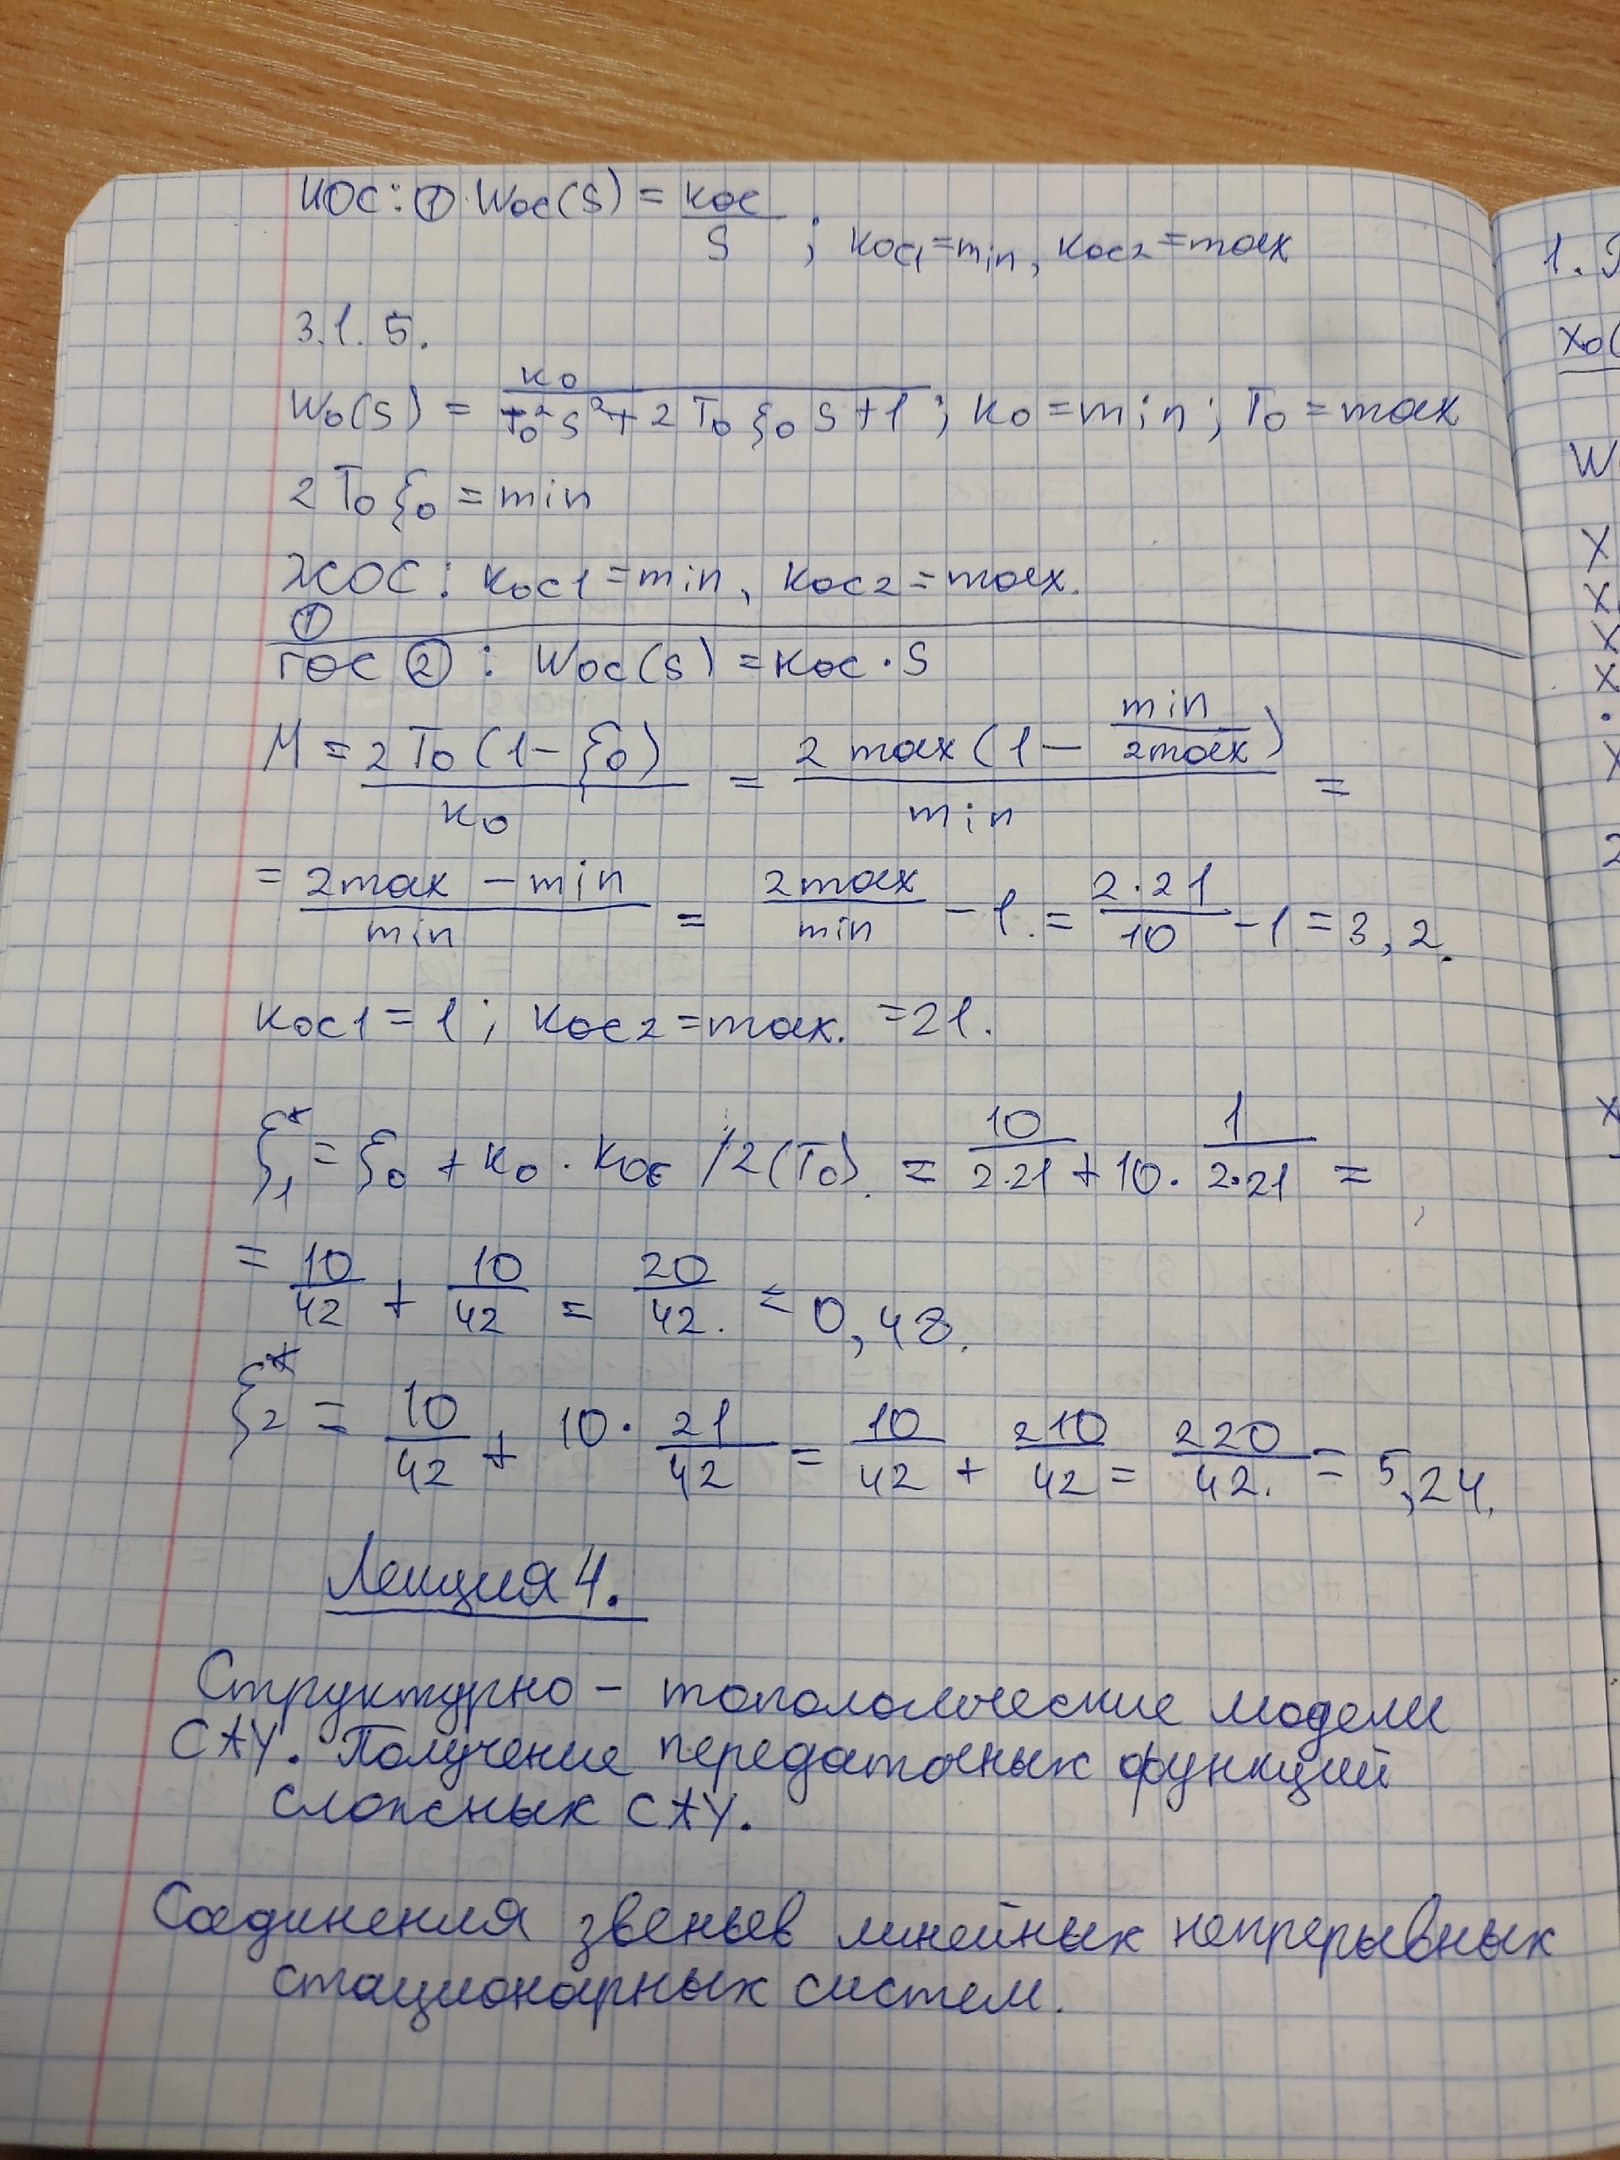 ИОС: ① Wос(s) = кос/s ; кос1=min, кос2=max
3.1.5.
W₀(s) = к₀/(T₀²s²+2T₀ξ₀s+1); к₀=min; T₀=max
2T₀ξ₀=min
ЖОС: кос1=min, кос2=max.
①
ГОС ② : Wос(s)=кос·s
M = 2T₀(1-ξ₀)/к₀ = 2max(1-min/2max)/min =
= (2max-min)/min = 2max/min - 1. = 2·21/10 - 1 = 3,2.
кос1=1; кос2=max. =21.
ξ₁* = ξ₀ + к₀·кос/2(T₀). = 10/2·21 + 10·1/2·21 =
= 10/42 + 10/42 = 20/42. = 0,48.
ξ₂* = 10/42 + 10·21/42 = 10/42 + 210/42 = 220/42. = 5,24.
Лекция 4.
Структурно - топологические модели
САУ. Получение передаточных функций
сложных САУ.
Соединения звеньев линейных непрерывных
стационарных систем.